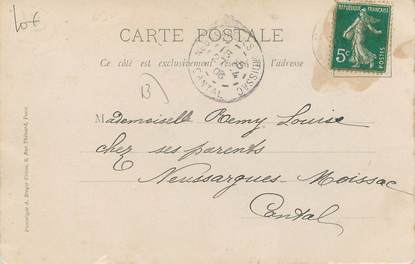 10€
CARTE POSTALE
RÉPUBLIQUE FRANÇAISE
5c
POSTES
Ce côté est exclusivement réservé à l'adresse
MOISSAC
CANTAL
B)
Mademoiselle Remy Louise
chez ses parents
Neussargues-Moissac
Cantal